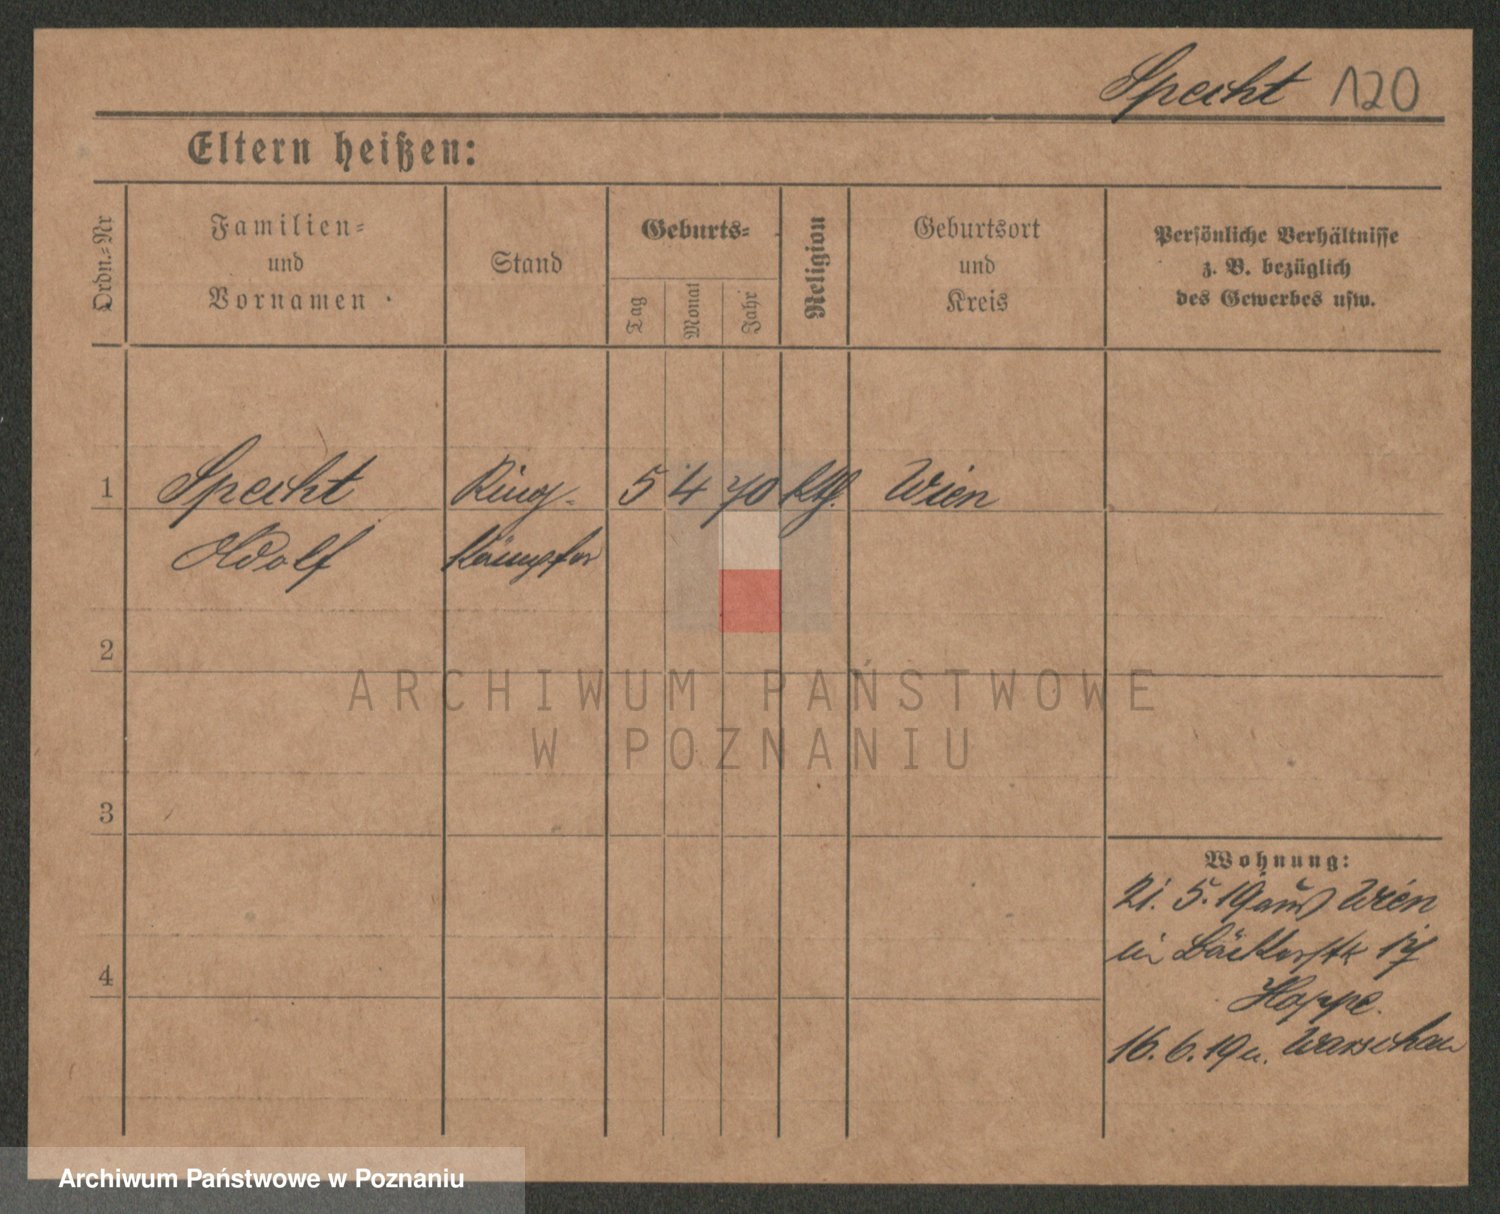 Specht 120
Eltern heißen:
Ordn.-Nr
Familien-
und
Vornamen
Stand
Geburts-
Tag
Monat
Jahr
Religion
Geburtsort
und
Kreis
Persönliche Verhältnisse
z. B. bezüglich
des Gewerbes usw.
1 Specht Ring- 5 4 70 kth. Wien
Adolf kämpfer
2
3
4
Wohnung:
21. 5. 19 aus Wien
in Bäckerstr 17
Hoppe.
16. 6. 19 n. Warschau
ARCHIWUM PAŃSTWOWE
W POZNANIU
Archiwum Państwowe w Poznaniu